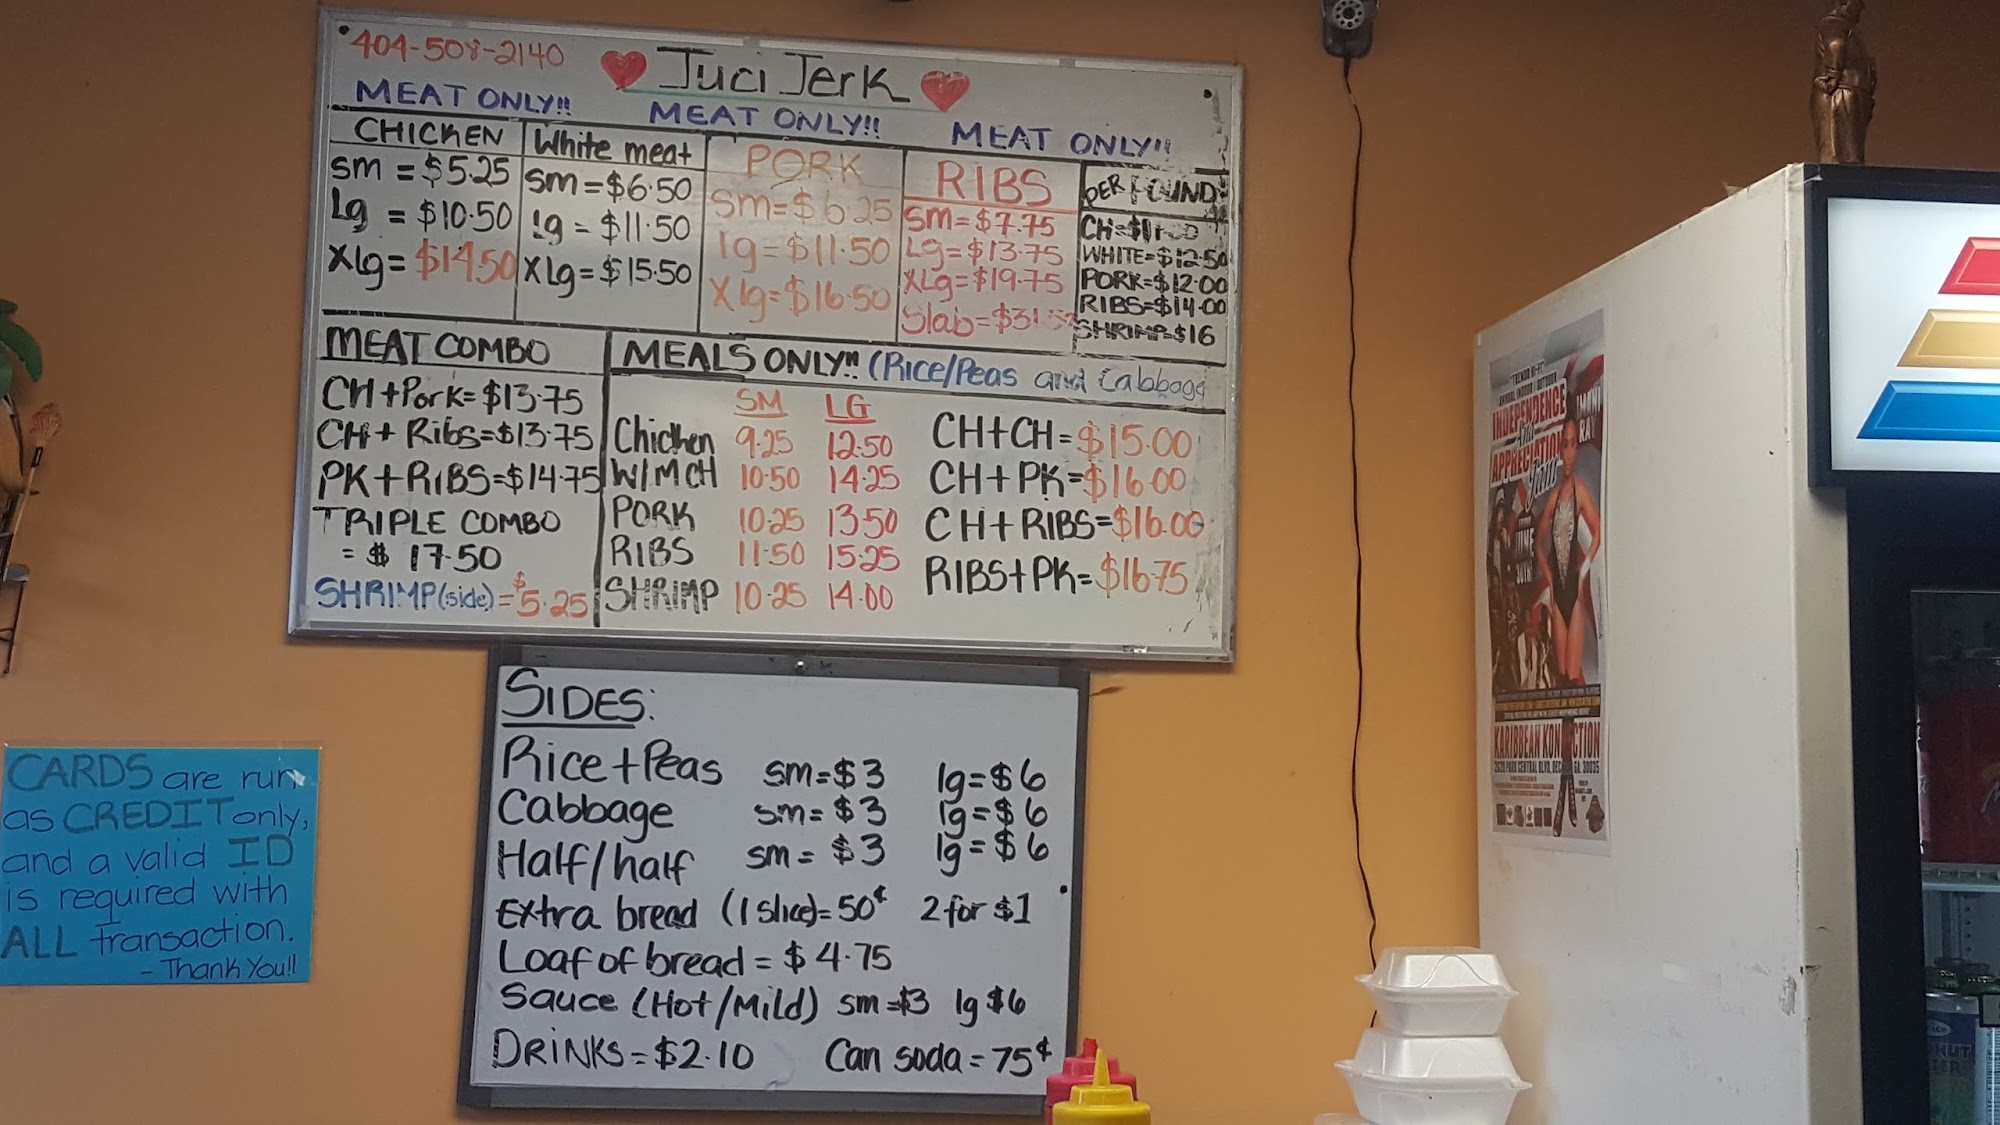 404-508-2140
Juci Jerk
MEAT ONLY!!
MEAT ONLY!!
MEAT ONLY!!
CHICKEN
sm = $5.25
Lg = $10.50
XLg = $14.50
White meat
sm = $6.50
lg = $11.50
XLg = $15.50
PORK
Sm = $6.25
lg = $11.50
Xlg = $16.50
RIBS
SM = $7.75
Lg = $13.75
XLg = $19.75
Slab = 
PER POUND
CH =
WHITE = $12.50
PORK = $12.00
RIBS = $14.00
SHRIMP = $16
MEAT COMBO
CH + Pork = $13.75
CH + Ribs = $13.75
PK + RIBS = $14.75
TRIPLE COMBO
= $ 17.50
SHRIMP (side) = $5.25
MEALS ONLY!! (Rice/Peas and Cabbage
SM LG
Chicken 9.25 12.50
W/M CH 10.50 14.25
PORK 10.25 13.50
RIBS 11.50 15.25
SHRIMP 10.25 14.00
CH + CH = $15.00
CH + PK = $16.00
CH + RIBS = $16.00
RIBS + PK = $16.75
SIDES:
Rice + Peas sm = $3 lg = $6
Cabbage sm = $3 lg = $6
Half/half sm = $3 lg = $6
Extra bread (1 slice) = 50¢ 2 for $1
Loaf of bread = $4.75
Sauce (Hot/Mild) sm = $3 lg $6
DRINKS = $2.10 Can soda = 75¢
CARDS are run
as CREDIT only,
and a valid ID
is required with
ALL transaction.
- Thank You!!
INDEPENDENCE
And
APPRECIATION
JUNE
30TH
KARIBBEAN